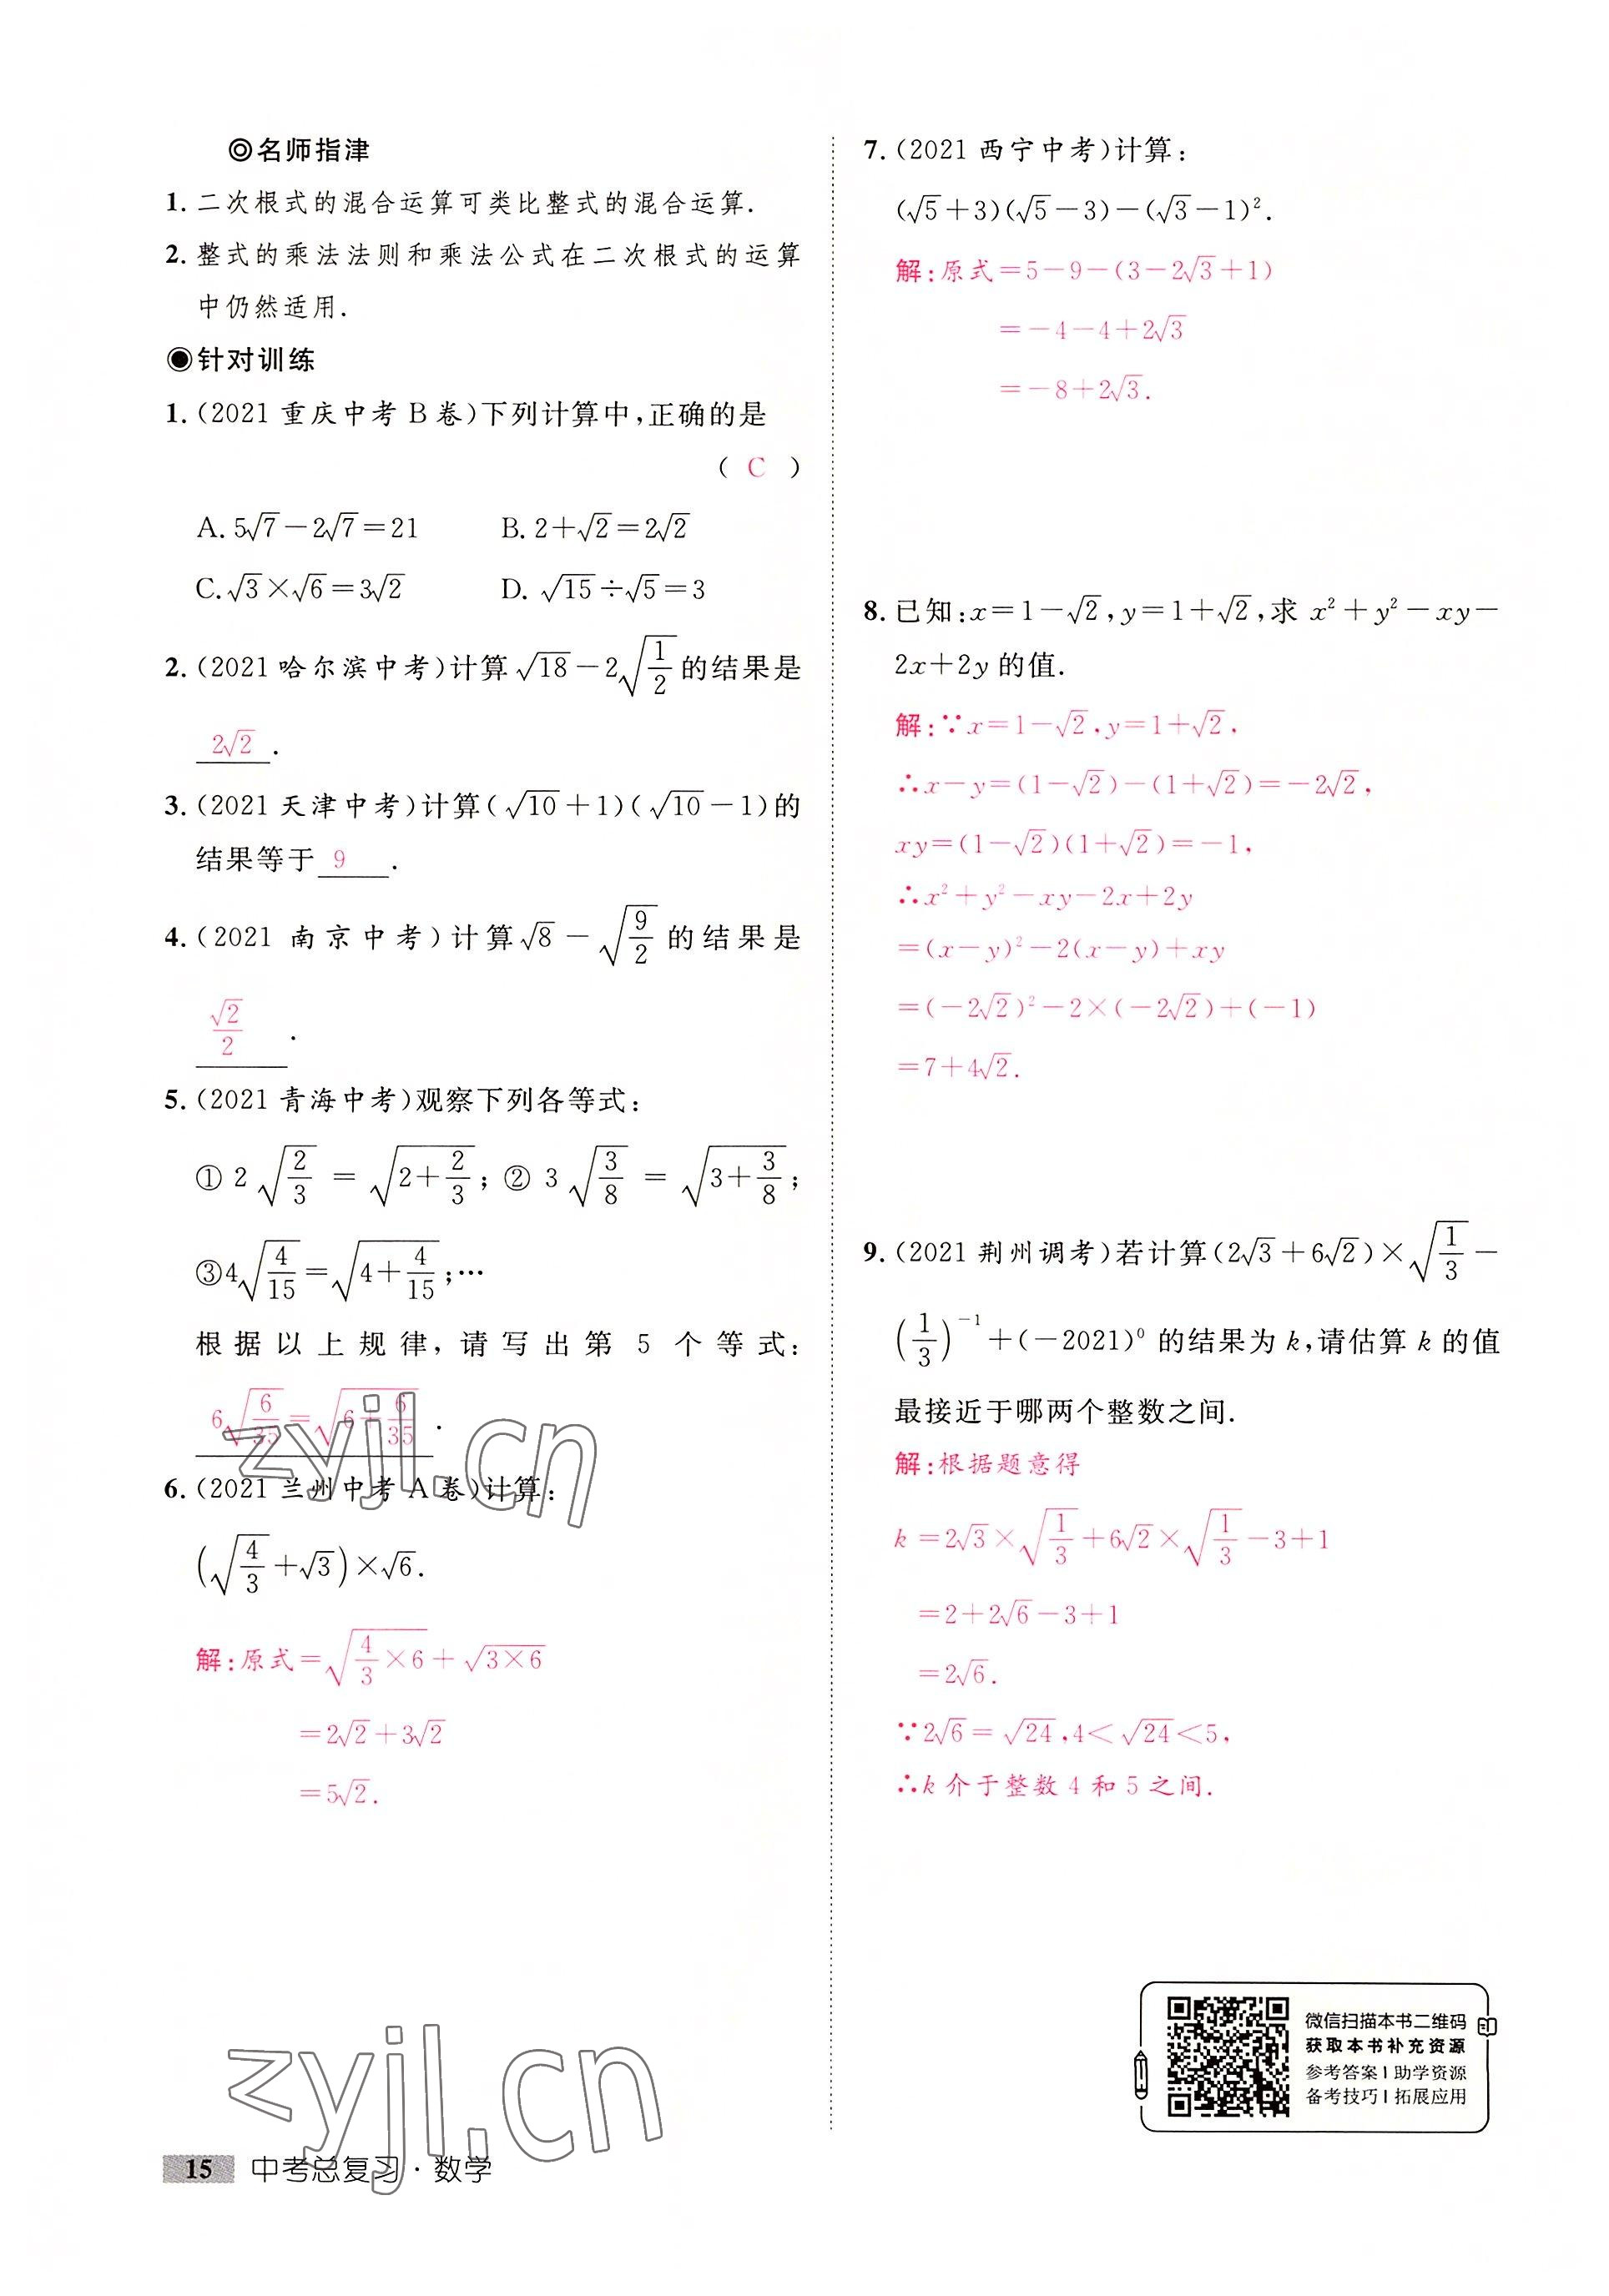 ◎名师指津
1. 二次根式的混合运算可类比整式的混合运算.
2. 整式的乘法法则和乘法公式在二次根式的运算
中仍然适用.
◉针对训练
1. (2021 重庆中考 B 卷)下列计算中,正确的是
( C )
A. 5√7－2√7＝21　B. 2＋√2＝2√2
C. √3×√6＝3√2　D. √15÷√5＝3
2. (2021 哈尔滨中考)计算√18－2√(1/2)的结果是
2√2 .
3. (2021 天津中考)计算(√10＋1)(√10－1)的
结果等于 9 .
4. (2021 南京中考)计算√8－√(9/2)的结果是
√2/2 .
5. (2021 青海中考)观察下列各等式:
① 2√(2/3)＝√(2＋2/3); ② 3√(3/8)＝√(3＋3/8);
③4√(4/15)＝√(4＋4/15);…
根据以上规律,请写出第 5 个等式:
6√(6/35)＝√(6＋6/35) .
6. (2021 兰州中考 A 卷)计算:
(√(4/3)＋√3)×√6.
解:原式＝√(4/3×6)＋√(3×6)
＝2√2＋3√2
＝5√2.
7. (2021 西宁中考)计算:
(√5＋3)(√5－3)－(√3－1)².
解:原式＝5－9－(3－2√3＋1)
＝－4－4＋2√3
＝－8＋2√3.
8. 已知:x＝1－√2,y＝1＋√2,求 x²＋y²－xy－
2x＋2y 的值.
解:∵x＝1－√2,y＝1＋√2,
∴x－y＝(1－√2)－(1＋√2)＝－2√2,
xy＝(1－√2)(1＋√2)＝－1,
∴x²＋y²－xy－2x＋2y
＝(x－y)²－2(x－y)＋xy
＝(－2√2)²－2×(－2√2)＋(－1)
＝7＋4√2.
9. (2021 荆州调考)若计算(2√3＋6√2)×√(1/3)－
(1/3)⁻¹＋(－2021)⁰ 的结果为 k,请估算 k 的值
最接近于哪两个整数之间.
解:根据题意得
k＝2√3×√(1/3)＋6√2×√(1/3)－3＋1
＝2＋2√6－3＋1
＝2√6.
∵2√6＝√24,4＜√24＜5,
∴k 介于整数 4 和 5 之间.
微信扫描本书二维码
获取本书补充资源
参考答案 | 助学资源
备考技巧 | 拓展应用
15 中考总复习·数学
zyjl.cn
zyjl.cn